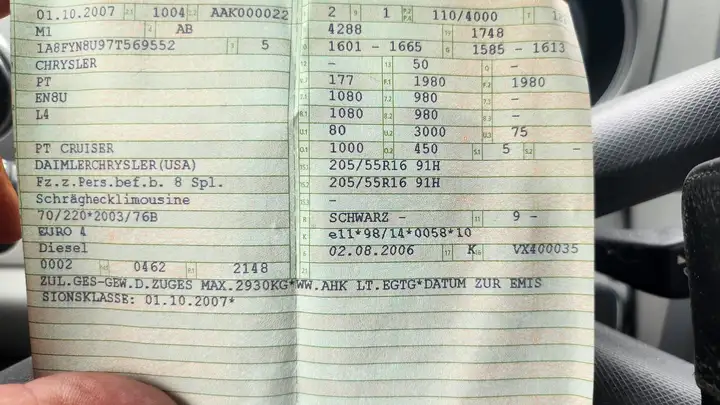 01.10.2007 2.1 1004 AAK000022
M1 AB
1A8FYN8U97T569552 5
CHRYSLER
PT
EN8U
L4
PT CRUISER
DAIMLERCHRYSLER(USA)
Fz.z.Pers.bef.b. 8 Spl.
Schräghecklimousine
70/220*2003/76B
EURO 4
Diesel
0002 0462 2148
2 9 1 110/4000
4288 1748
1601 - 1665 1585 - 1613
- 50 -
177 1980 1980
1080 980 -
1080 980 -
80 3000 75
1000 450 5 -
205/55R16 91H
205/55R16 91H
-
SCHWARZ - 11 9 -
e11*98/14*0058*10
02.08.2006 17 K VX400035
ZUL.GES-GEW.D.ZUGES MAX.2930KG*WW.AHK LT.EGTG*DATUM ZUR EMIS
SIONSKLASSE: 01.10.2007*